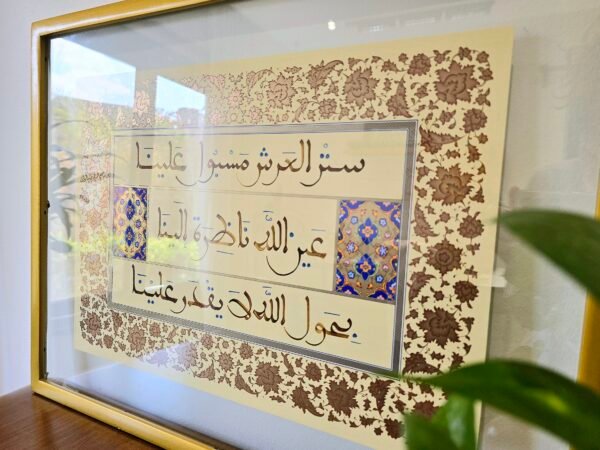 سِتْرُ العَرْشِ مَسْبُولٌ عَلَيْنَا
عَيْنُ اللَّهِ نَاظِرَةٌ إِلَيْنَا
بِحَوْلِ اللَّهِ لَا يُقْدَرُ عَلَيْنَا